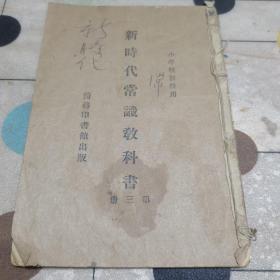 小學校初級用
新時代常識教科書
第三册
商務印書館出版